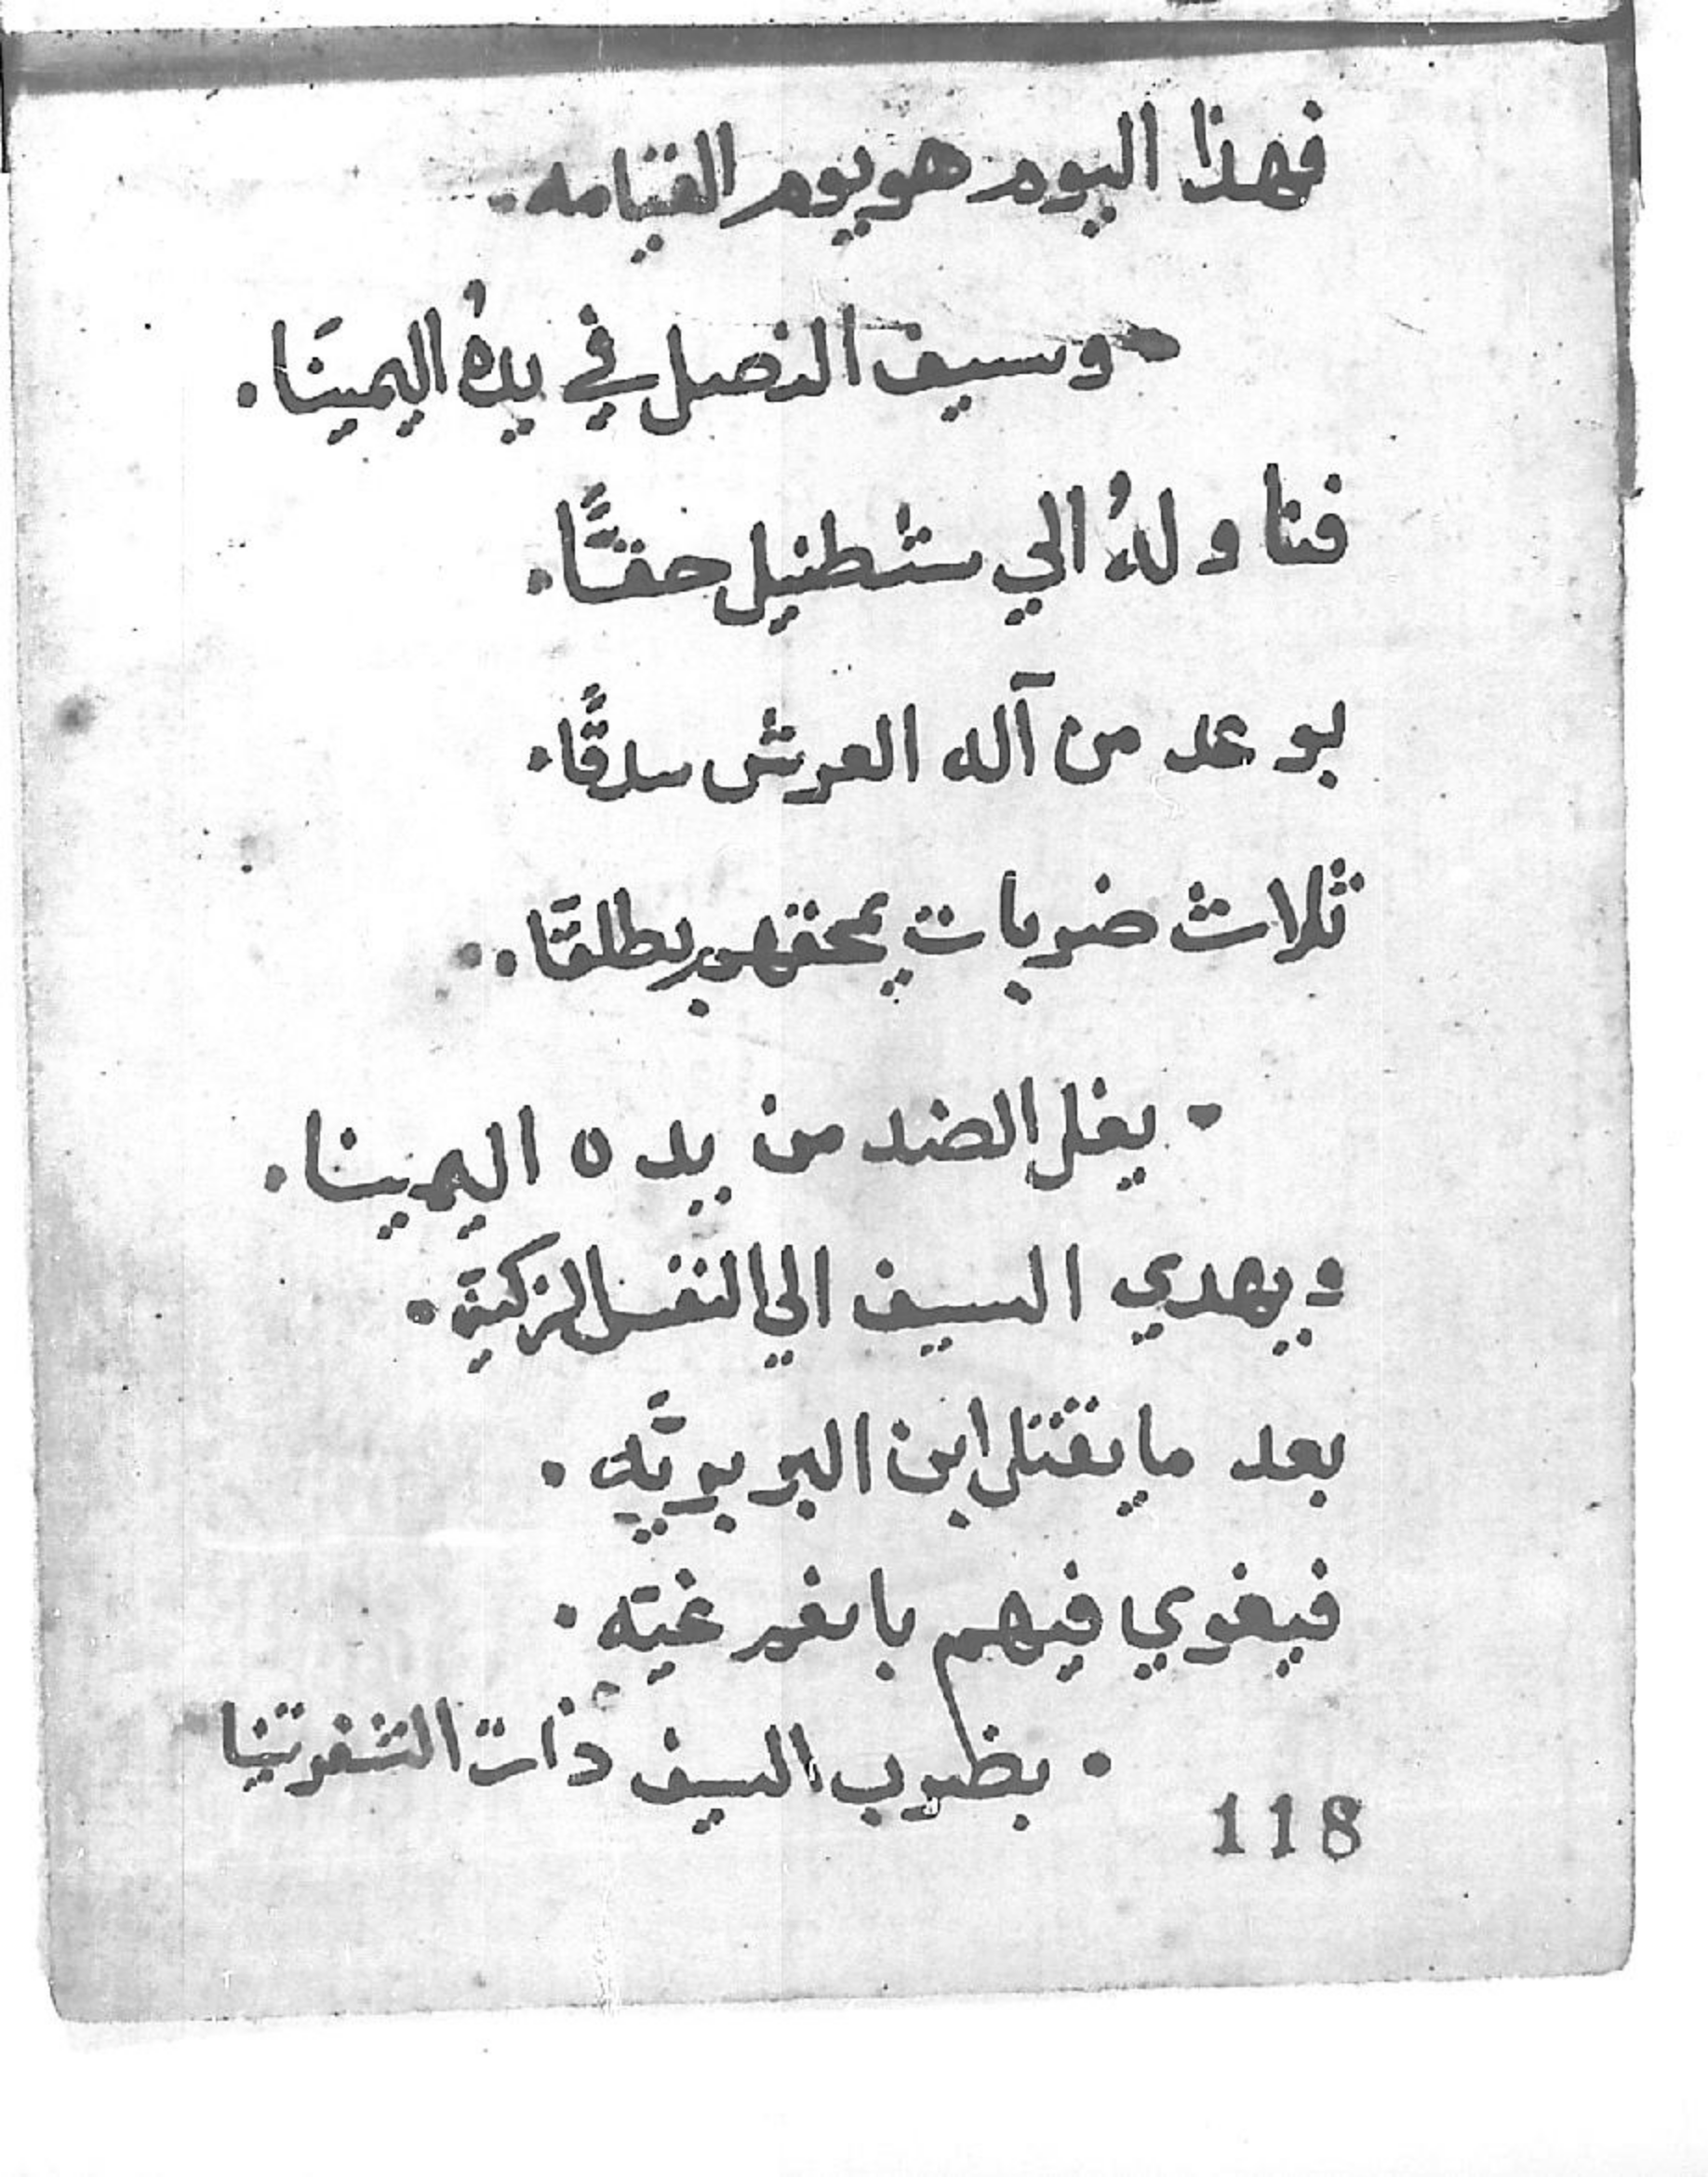 فهذا اليوم هو يوم القيامه.
وسيف النصل في يدهُ اليمينَا.
فناولهُ الي شطنيل حقًّا.
بوعد من آله العرش سدقًا.
ثلاث ضربات يمحقهم بطلقَا.
- يغل الضد من يده اليمينا.
ويهدي السيف الي النفس الزكية.
بعد ما يقتل ابن البربريَّه.
فيغوي فيهم يا نغير غيَّه.
. بضرب السيف ذات الشفرتينا
118